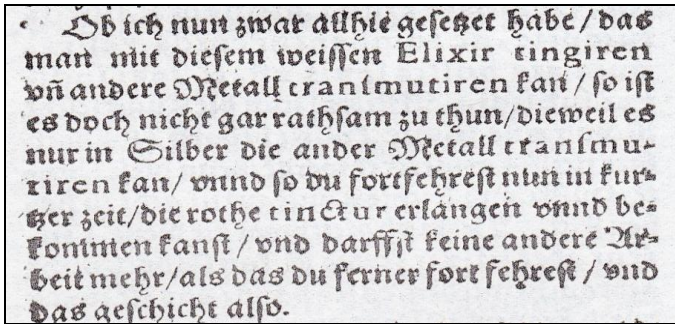 Ob ich nun zwar allhie gesetzet habe / das
man mit diesem weissen Elixir tingiren
vñ andere Metall transmutiren kan / so ist
es doch nicht gar rathsam zu thun / dieweil es
nur in Silber die ander Metall transmu-
tiren kan / vnnd so du fortfehrest nun in kur-
tzer zeit / die rothe tinctur erlangen vnnd be-
kommen kanst / vnd darffst keine andere Ar-
beit mehr / als das du ferner fort fehrest / vnd
das geschicht also.